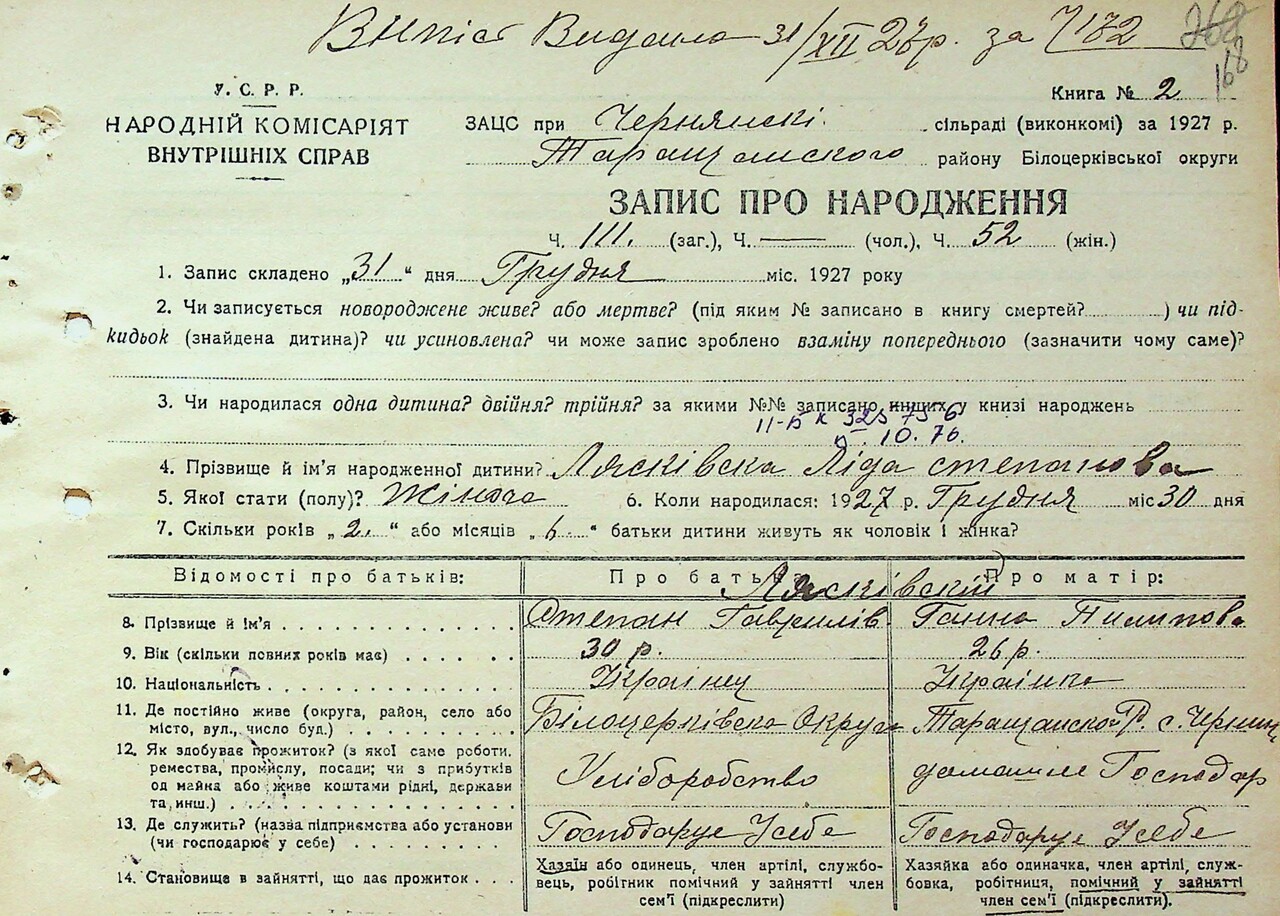 Випіс Видано 31/XII 27р. за № 182
168
У. С. Р. Р.
НАРОДНІЙ КОМІСАРІЯТ
ВНУТРІШНІХ СПРАВ
Книга № 2
ЗАЦС при Чернянскі. сільраді (виконкомі) за 1927 р.
Таращанского району Білоцерківської округи
ЗАПИС ПРО НАРОДЖЕННЯ
Ч. 111. (заг.), Ч. — (чол.), Ч. 52 (жін.)
1. Запис складено „31“ дня Грудня міс. 1927 року
2. Чи записується новороджене живе? або мертве? (під яким № записано в книгу смертей? ) чи під-
кидьок (знайдена дитина)? чи усиновлена? чи може запис зроблено взаміну попереднього (зазначити чому саме)?
3. Чи народилася одна дитина? двійня? трійня? за якими №№ записано инших у книзі народжень
II-БК 325756
10. 76.
4. Прізвище й ім’я народженної дитини? Лясківска Ліда степанова
5. Якої стати (полу)? Жіноча 6. Коли народилася: 1927 р. Грудня міс 30 дня
7. Скільки років „2.“ або місяців „6“ батьки дитини живуть як чоловік і жінка?
Відомості про батьків: Про батька Про матір:
Лясківскій
8. Прізвище й ім’я Степан Гаврилів. Ганна Пилипова
9. Вік (скільки повних років має) 30 р. 26 р.
10. Національність Украінец Украінка
11. Де постійно живе (округа, район, село або
місто, вул., число буд.) Білоцерківска Округа Таращанской Р. с. Чернин
12. Як здобуває прожиток? (з якої саме роботи.
ремества, промислу, посади; чи з прибутків
од майна або живе коштами рідні, держави
та инш.) Хліборобство домашнє Господар
13. Де служить? (назва підприємства або установи
(чи господарює у себе) Господарує Усебе Господарує Усебе
14. Становище в зайнятті, що дає прожиток
Хазяїн або одинець, член артілі, службо-
вець, робітник помічний у зайнятті член
сем’ї (підкреслити)
Хазяйка або одиначка, член артілі, служ-
бовка, робітниця, помічний у зайнятті
член сем’ї (підкреслити).